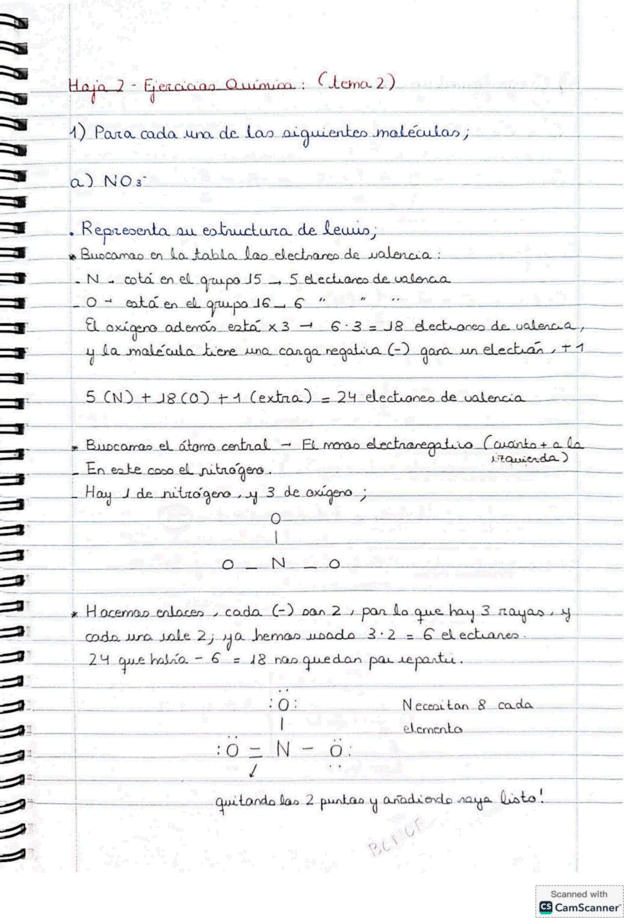 Hoja 2 - Ejercicios Química: (tema 2)
1) Para cada una de las siguientes moléculas;
a) NO₃⁻
• Representa su estructura de lewis;
* Buscamos en la tabla los electrones de valencia:
- N - está en el grupo 15 → 5 electrones de valencia
- O - está en el grupo 16 → 6 " " "
El oxígeno además está x3 → 6·3 = 18 electrones de valencia,
y la molécula tiene una carga negativa (-) gana un electrón, +1
5 (N) + 18 (O) + 1 (extra) = 24 electrones de valencia
* Buscamos el átomo central → El menos electronegativo (cuánto + a la
izquierda)
- En este caso el nitrógeno.
- Hay 1 de nitrógeno, y 3 de oxígeno;
O
|
O - N - O
* Hacemos enlaces, cada (-) son 2, por lo que hay 3 rayas, y
cada una vale 2; ya hemos usado 3·2 = 6 electrones.
24 que había - 6 = 18 nos quedan por repartir.
:Ö: Necesitan 8 cada
| elemento
:Ö = N - Ö:
quitando los 2 puntos y añadiendo raya listo!
Scanned with
CS CamScanner